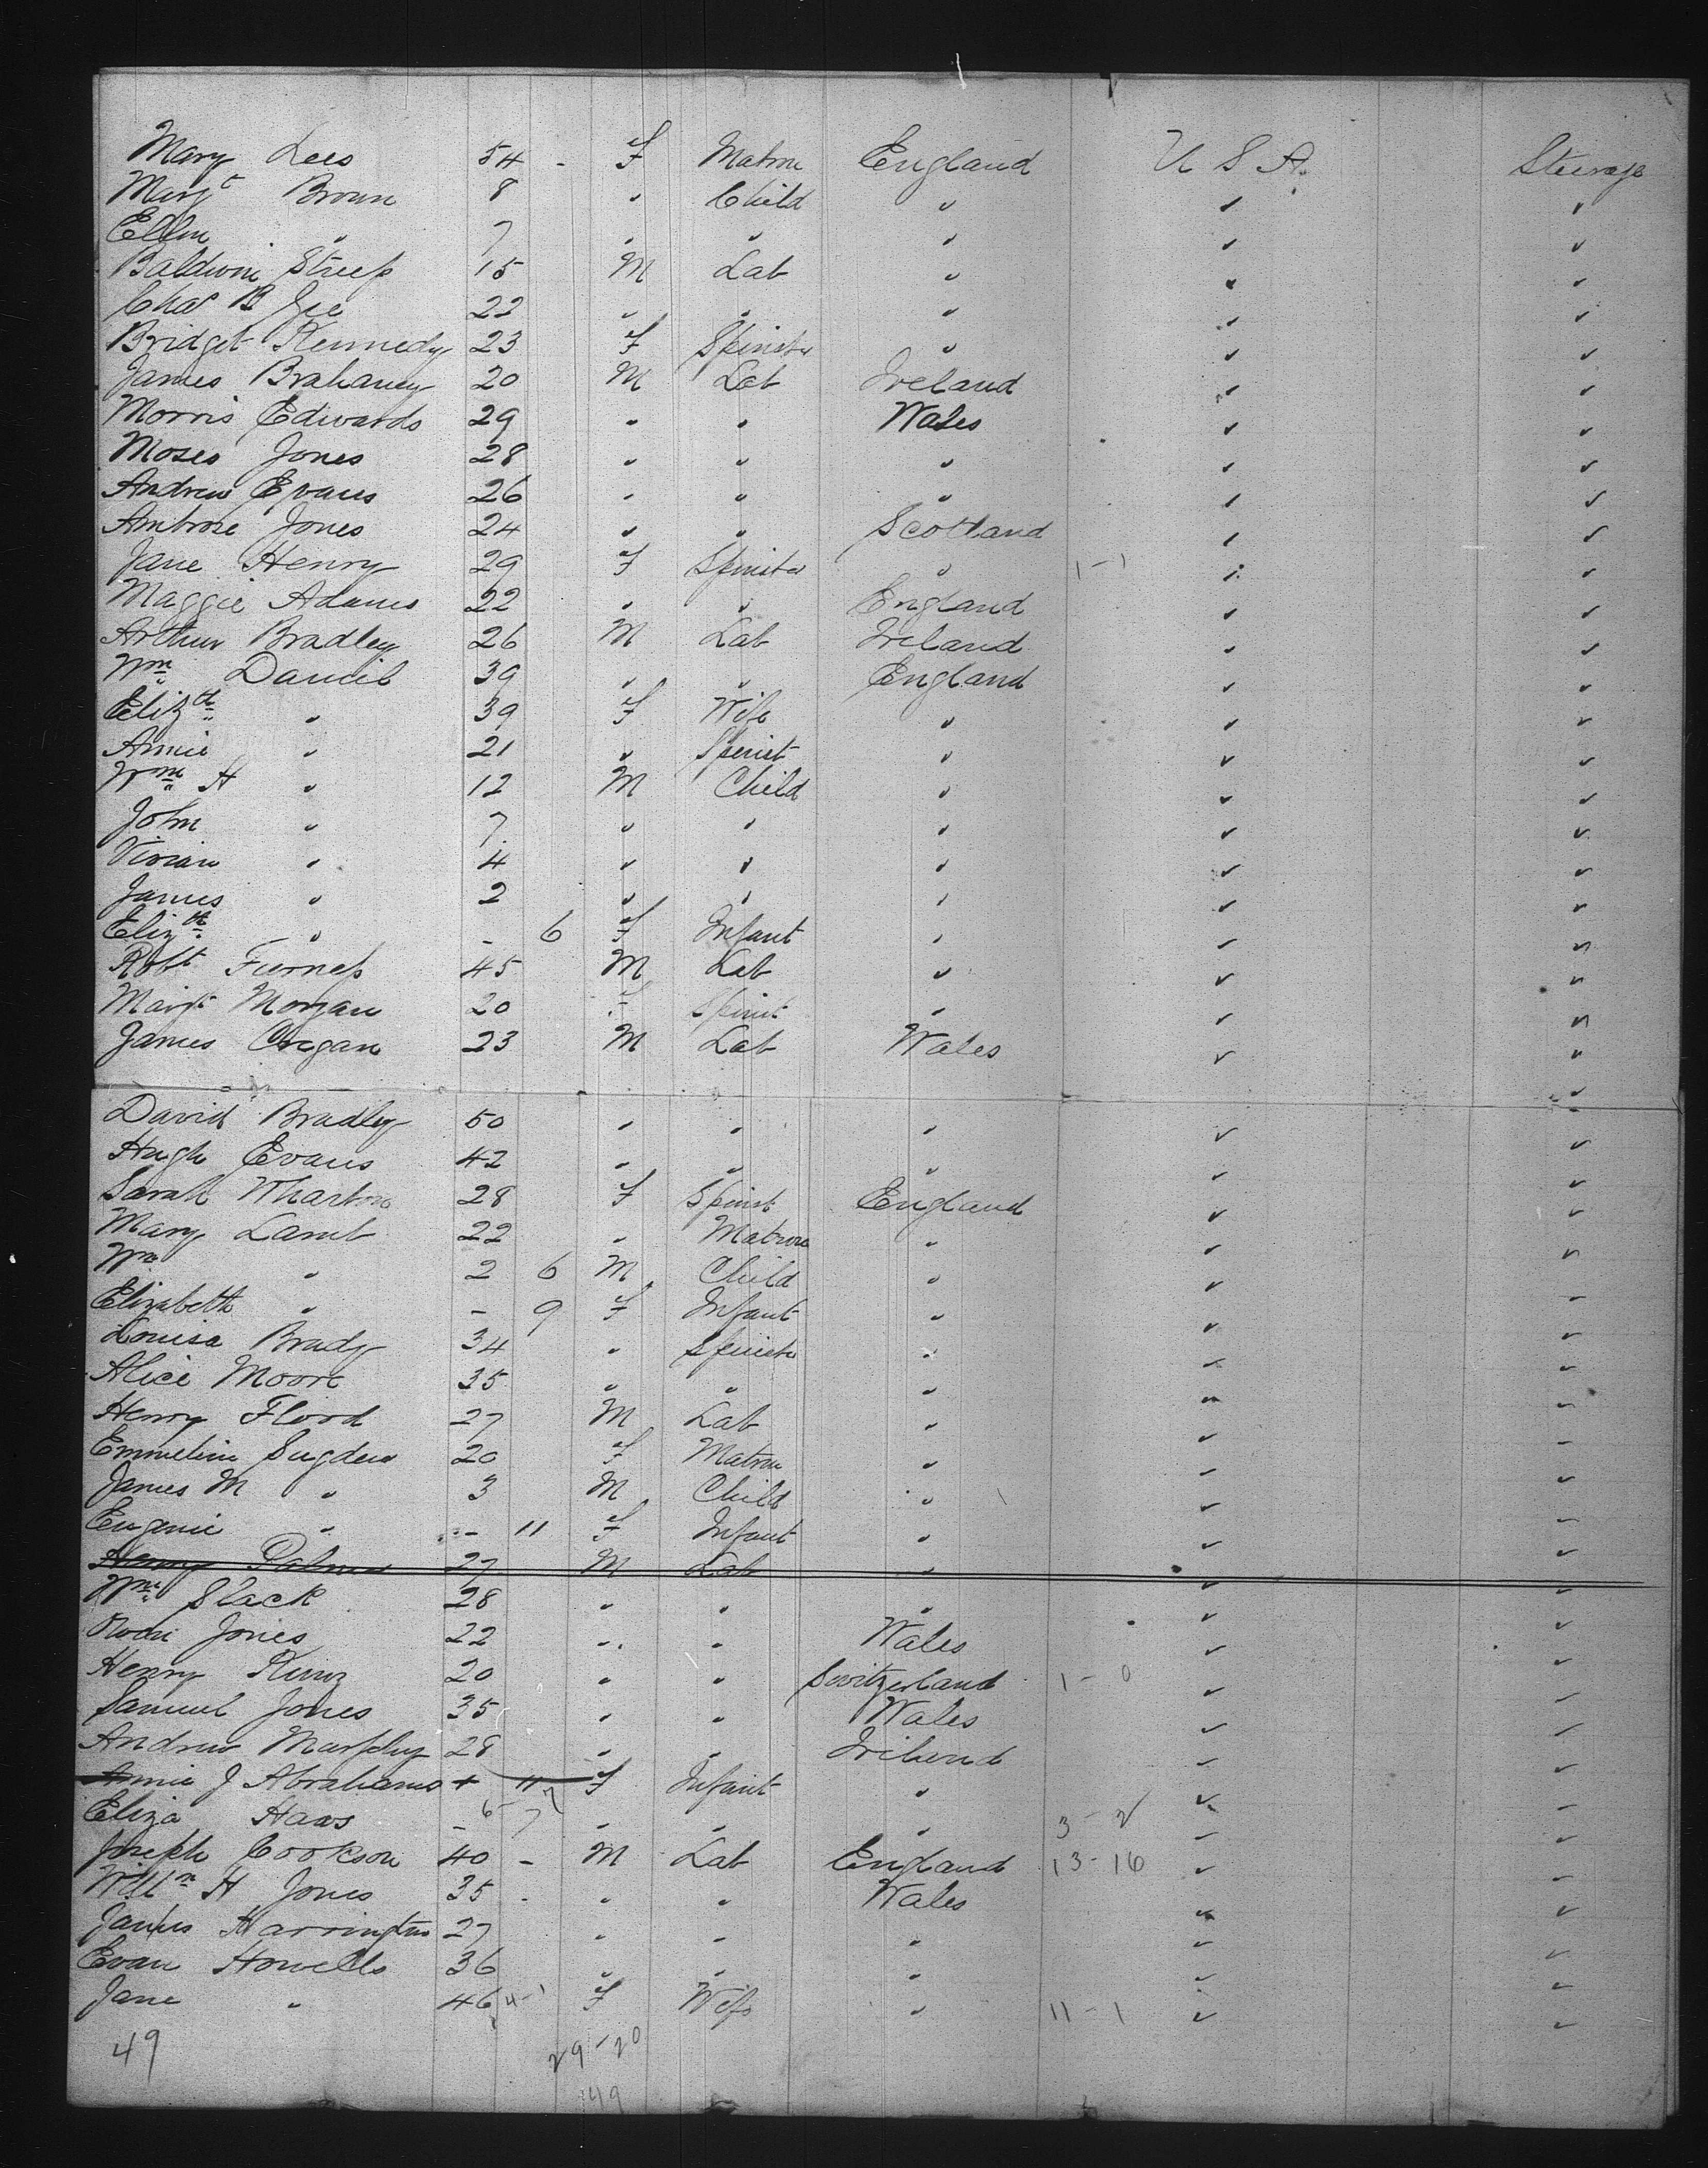 Mary Lees 54 - F Matron England U S A. Steerage
Margt Brown 8 " Child " " "
Ellen " 7 " " " " "
Baldwin Streep 15 M Lab " " "
Chas B Gee 22 " " " " "
Bridget Kennedy 23 F Spinster " " "
James Brahaney 20 M Lab Ireland " "
Morris Edwards 29 " " Wales " "
Moses Jones 28 " " " " "
Andrew Evans 26 " " " " "
Ambrose Jones 24 " " Scotland " "
Jane Henry 29 F Spinster " 1-1 " "
Maggie Adams 22 " " England " "
Arthur Bradley 26 M Lab Ireland " "
Wm Daniel 39 " " England " "
Elizth " 39 F Wife " " "
Annie " 21 " Spinst " " "
Wm H " 12 M Child " " "
John " 7 " " " " "
Vivian " 4 " " " " "
James " 2 " " " " "
Elizth " - 6 F Infant " " "
Robt Furness 45 M Lab " " "
Margt Morgan 20 F Spinst " " "
James Cregan 23 M Lab Wales " "
David Bradley 50 " " " " "
Hugh Evans 42 " " " " "
Sarah Wharton 28 F Spinst England " "
Mary Lamb 22 " Matron " " "
Wm " 2 6 M Child " " "
Elizabeth " - 9 F Infant " " "
Louisa Brady 34 " Spinster " " "
Alice Moore 35 " " " " "
Henry Flood 27 M Lab " " "
Emmeline Sugden 20 F Matron " " "
James M " 3 M Child " " "
Eugenie " - 11 F Infant " " "
Henry Palmer 27 M Lab " " "
Wm Slack 28 " " " " "
Jones 22 " " Wales " "
Henry Kunz 20 " " Switzerland 1-0 " "
Samuel Jones 35 " " Wales " "
Andrew Murphy 28 " " Ireland " "
Annie J Abrahams + 11 F Infant " " "
Eliza Haas - 7 " " " 3-2 " "
Joseph Cookson 40 - M Lab England 13-16 " "
Willm H Jones 35 - " " Wales " "
James Harrington 27 " " " " "
Evan Howells 36 " " " " "
Jane " 46 4-1 F Wife " 11-1 " "
49 29-20
49